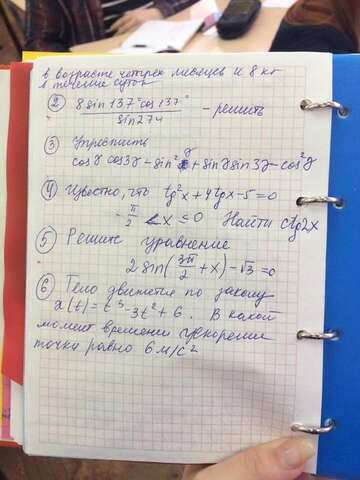 в возрасте четырех месяцев и 8 кг
в течение суток
② 8 sin 137° cos 137° / sin 274 - решить
③ Упростить
cos γ cos 3γ - sin² γ + sin γ sin 3γ - cos² γ
④ Известно, что tg²x + 4tgx - 5 = 0
- π/2 < x ≤ 0 Найти ctg2x
⑤ Решите уравнение
2 sin(3π/2 + x) - √3 = 0
⑥ Тело движется по закону
x(t) = t³ - 3t² + 6. В какой
момент времени ускорение
точки равно 6 м/с²